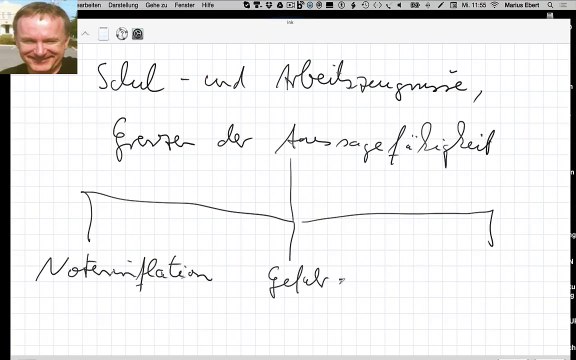 earbeiten Darstellung Gehe zu Fenster Hilfe Mi. 11:55 Marius Ebert
Ink
Schul- und Arbeitszeugnisse,
Grenzen der Aussagefähigkeit
Noteninflation Gefahr -